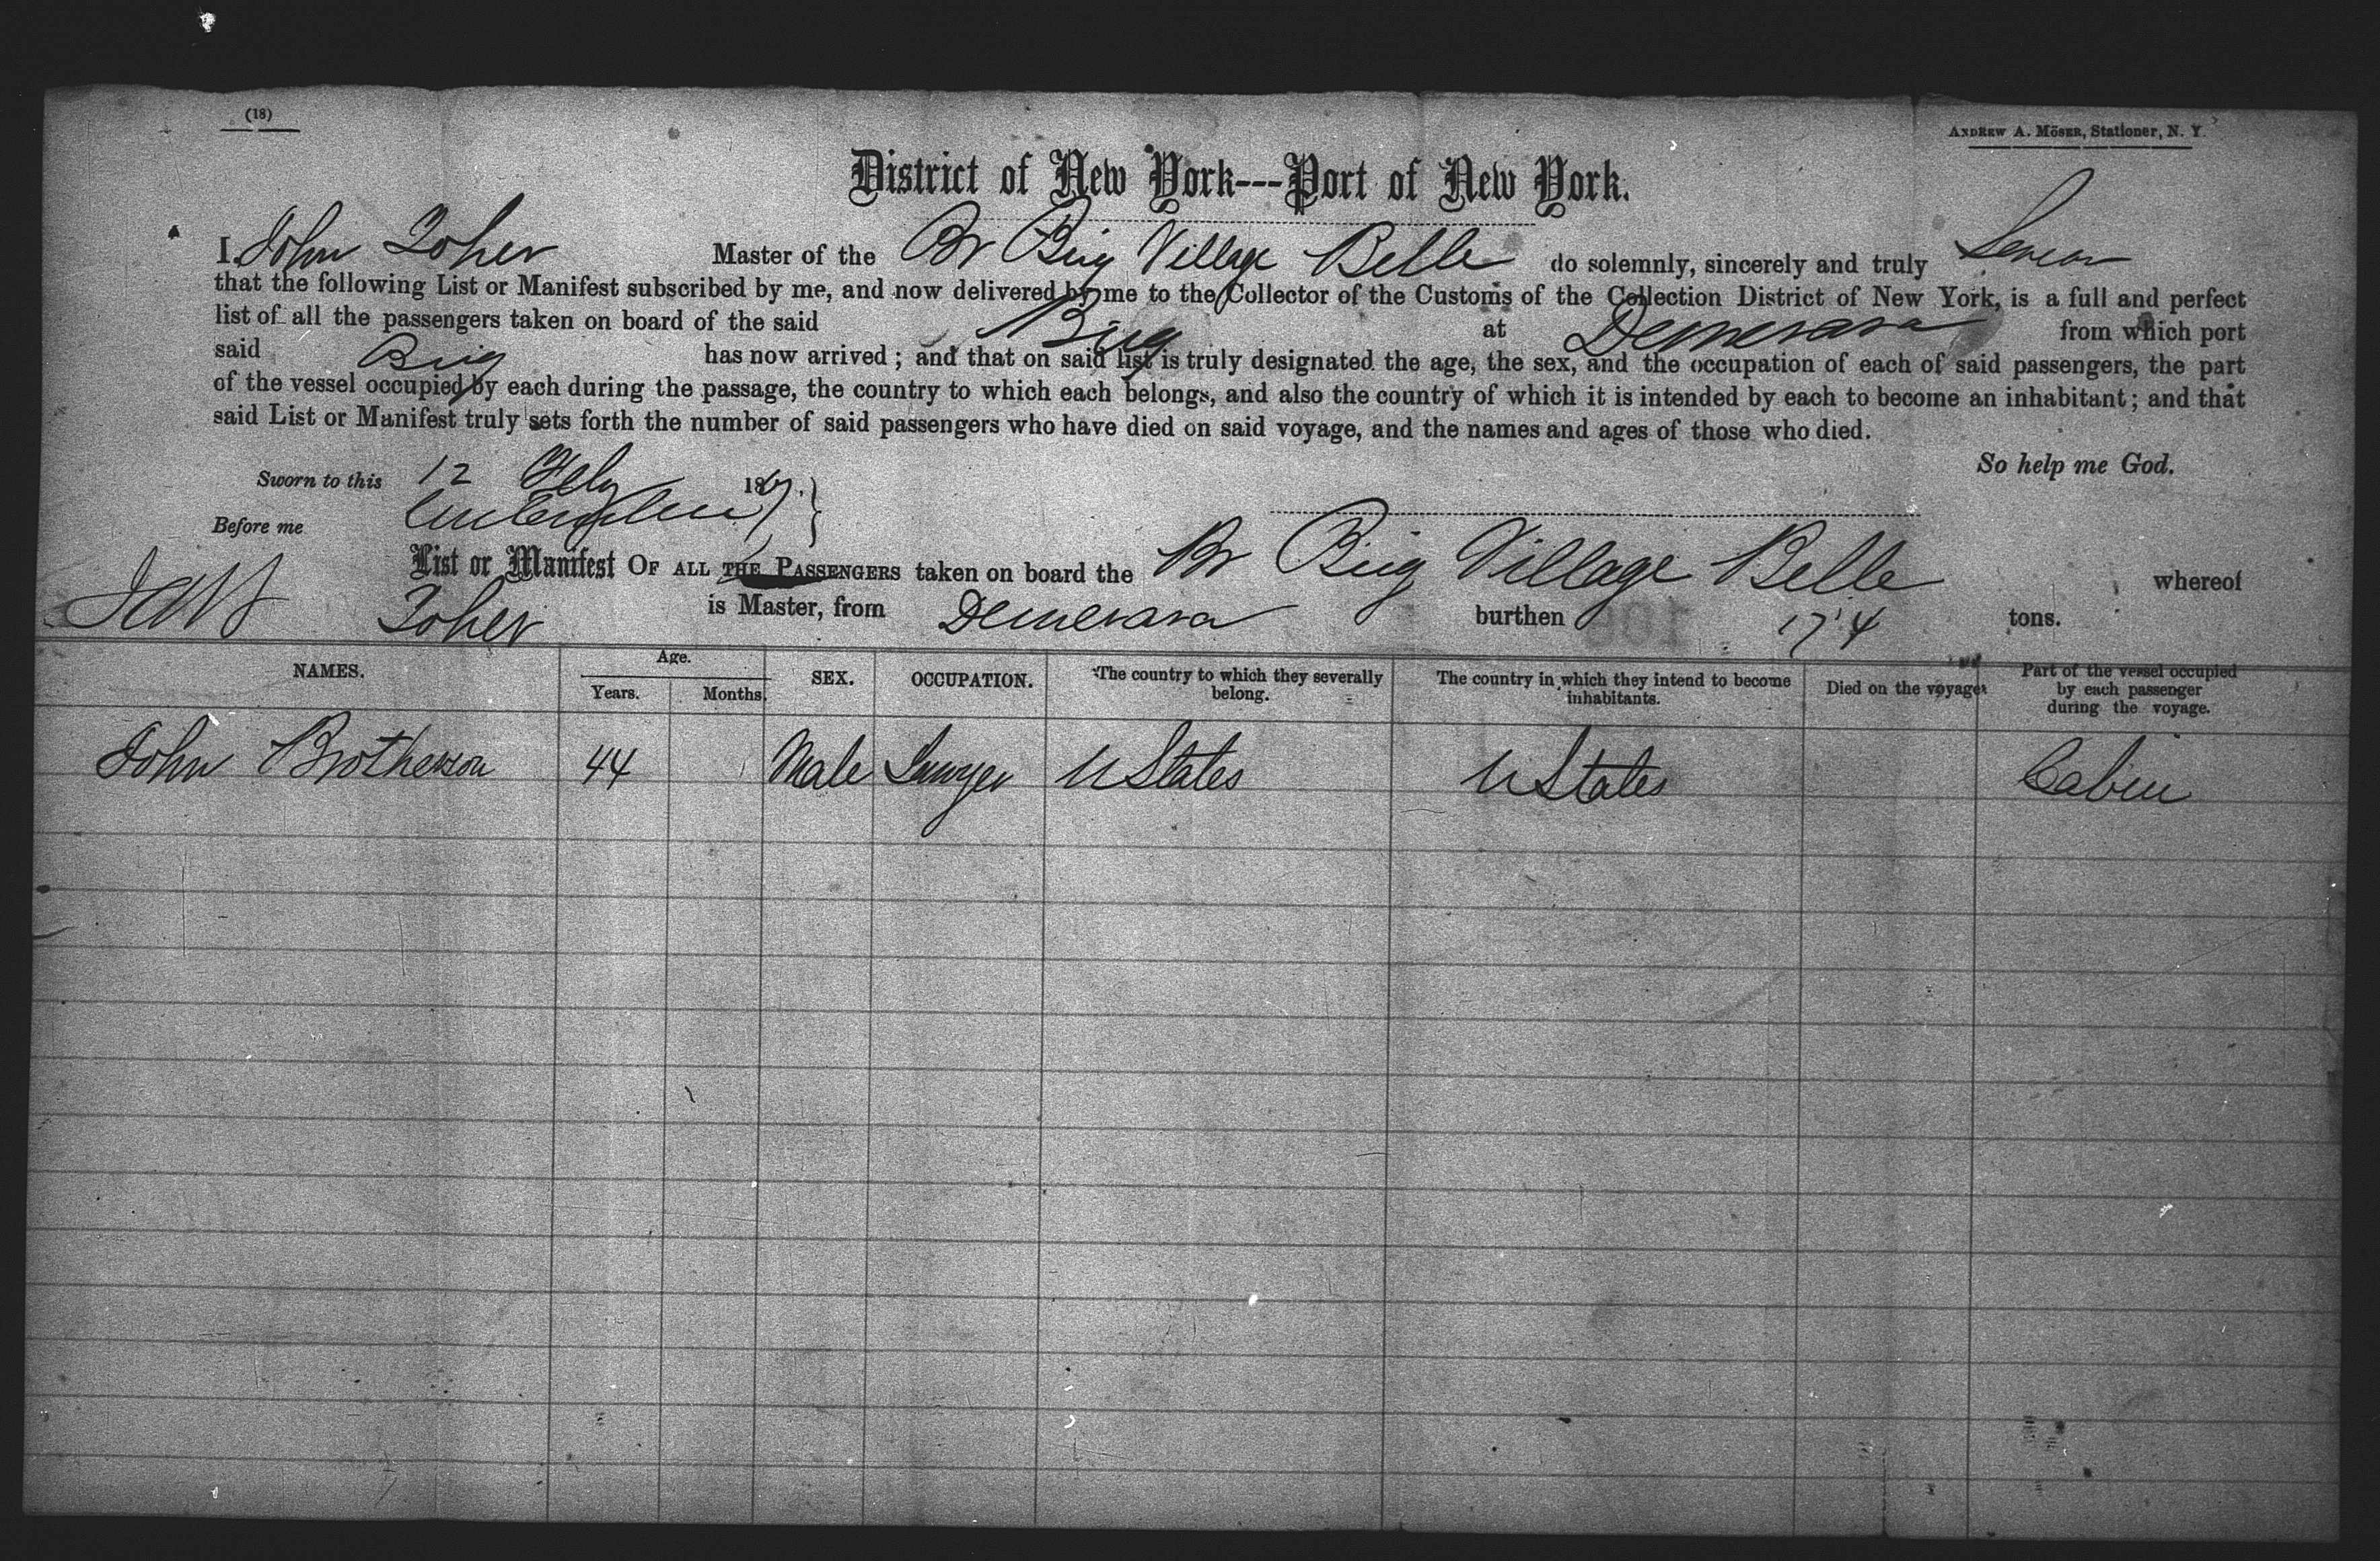 (18)
ANDREW A. MÖSER, Stationer, N. Y.
District of New York---Port of New York.
I, John Toher Master of the Br Brig Village Belle do solemnly, sincerely and truly Swear
that the following List or Manifest subscribed by me, and now delivered by me to the Collector of the Customs of the Collection District of New York, is a full and perfect
list of all the passengers taken on board of the said Brig at Demerara from which port
said Brig has now arrived; and that on said list is truly designated the age, the sex, and the occupation of each of said passengers, the part
of the vessel occupied by each during the passage, the country to which each belongs, and also the country of which it is intended by each to become an inhabitant; and that
said List or Manifest truly sets forth the number of said passengers who have died on said voyage, and the names and ages of those who died.
So help me God.
Sworn to this 12 Feby 186
Before me
List or Manifest OF ALL THE PASSENGERS taken on board the Br Brig Village Belle whereof
Toher is Master, from Demerara burthen 174 tons.
NAMES. Age. Years. Months. SEX. OCCUPATION. The country to which they severally belong. The country in which they intend to become inhabitants. Died on the voyage. Part of the vessel occupied by each passenger during the voyage.
John Brotherson 44 Male Lawyer U States U States Cabin